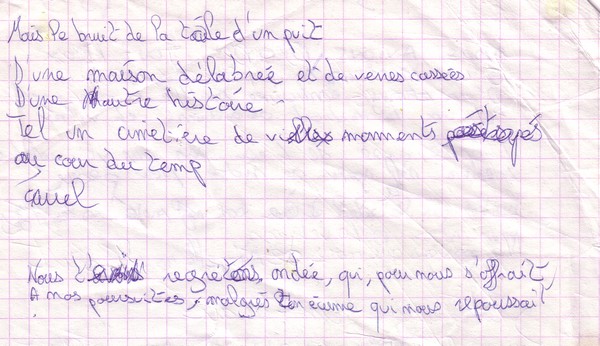 Mais le bruit de la tôle d'un puit
D'une maison délabrée et de verres cassées
D'une autre histoire
Tel un cimetière de moments
au cœur du temp

Nous regrétons ondée, qui, pour nous s'offrait,
A nos poursuites, malgrés ton écume qui nous repoussait